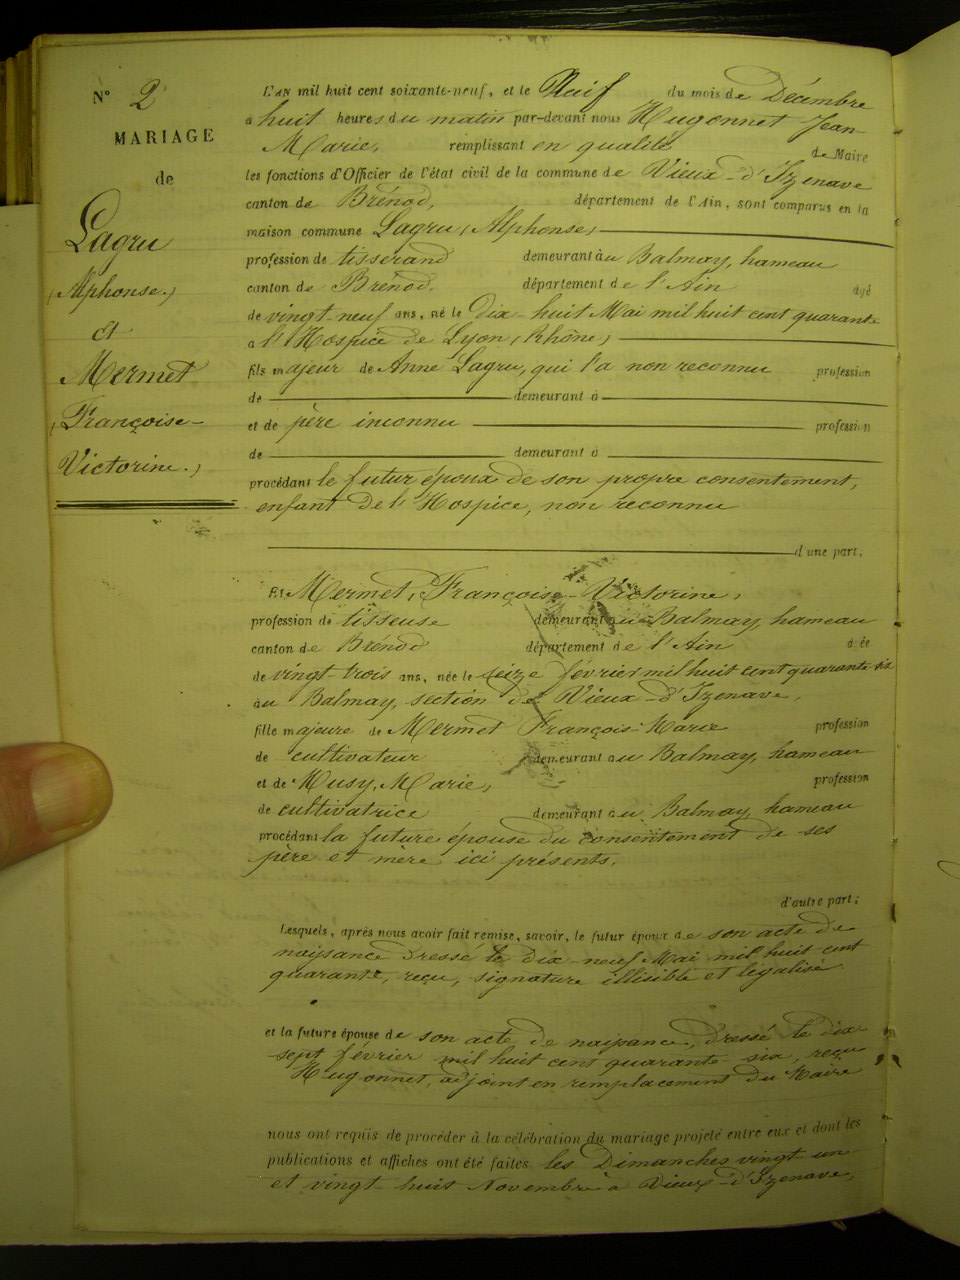 N° 2
MARIAGE
de
Lagru
(Alphonse.)
et
Mermet
(Françoise-
Victorine.)
L'AN mil huit cent soixante-neuf, et le Neuf du mois de Décembre
à huit heures du matin par-devant nous Hugonnet Jean-
Marie, remplissant en qualité de Maire
les fonctions d'Officier de l'état civil de la commune de Vieux-d'Izenave
canton de Brénod, département de l'Ain, sont comparus en la
maison commune Lagru, (Alphonse)
profession de tisserand demeurant au Balmay, hameau
canton de Brénod, département de l'Ain âgé
de vingt-neuf ans, né le Dix-huit Mai mil huit cent quarante
à l'Hospice de Lyon, (Rhône)
fils majeur de Anne Lagru, qui l'a non reconnu profession
de demeurant à
et de père inconnu profession
de demeurant à
procédant le futur époux de son propre consentement,
enfant de l'Hospice, non reconnu
d'une part.
Et Mermet, Françoise-Victorine,
profession de tisseuse demeurant au Balmay, hameau
canton de Brénod département de l'Ain âgée
de vingt-trois ans, née le seize février mil huit cent quarante-six
au Balmay, section de Vieux-d'Izenave,
fille majeure de Mermet François-Marie profession
de cultivateur demeurant au Balmay, hameau
et de Musy, Marie, profession
de cultivatrice demeurant au Balmay, hameau
procédant la future épouse du consentement de ses
père et mère ici présents.
d'autre part;
Lesquels, après nous avoir fait remise, savoir, le futur époux de son acte de
naissance dressé le dix-neuf Mai mil huit cent
quarante, reçu, signature illisible et légalisé
et la future épouse de son acte de naissance, dressé le dix-
sept février mil huit cent quarante-six, reçu
Hugonnet, adjoint en remplacement du Maire
nous ont requis de procéder à la célébration du mariage projeté entre eux et dont les
publications et affiches ont été faites les Dimanches vingt un
et vingt-huit Novembre à Vieux-d'Izenave,